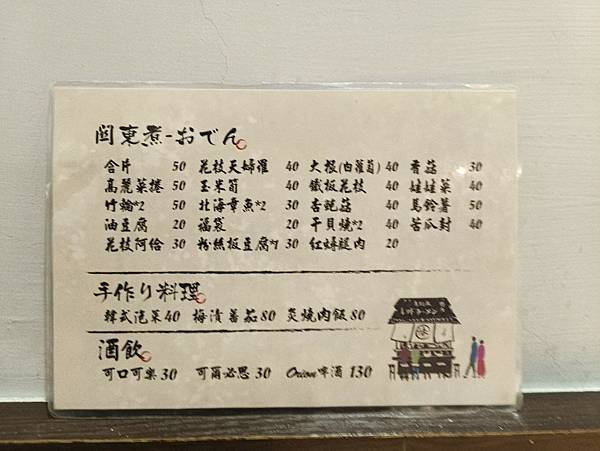 関東煮-おでん
含片 50 花枝天婦羅 40 大根(白蘿蔔) 40 香菇 30
高麗菜捲 50 玉米筍 40 鐵板花枝 40 娃娃菜 40
竹輪*2 50 北海章魚*2 30 杏鮑菇 40 馬鈴薯 50
油豆腐 20 福袋 20 干貝燒*2 40 苦瓜封 40
花枝阿給 30 粉絲板豆腐*1 30 紅蟳腿肉 20
手作り料理
韓式泡菜40 梅漬蕃茄80 炙燒肉飯80
酒飲
可口可樂30 可爾必思30 Orion啤酒130